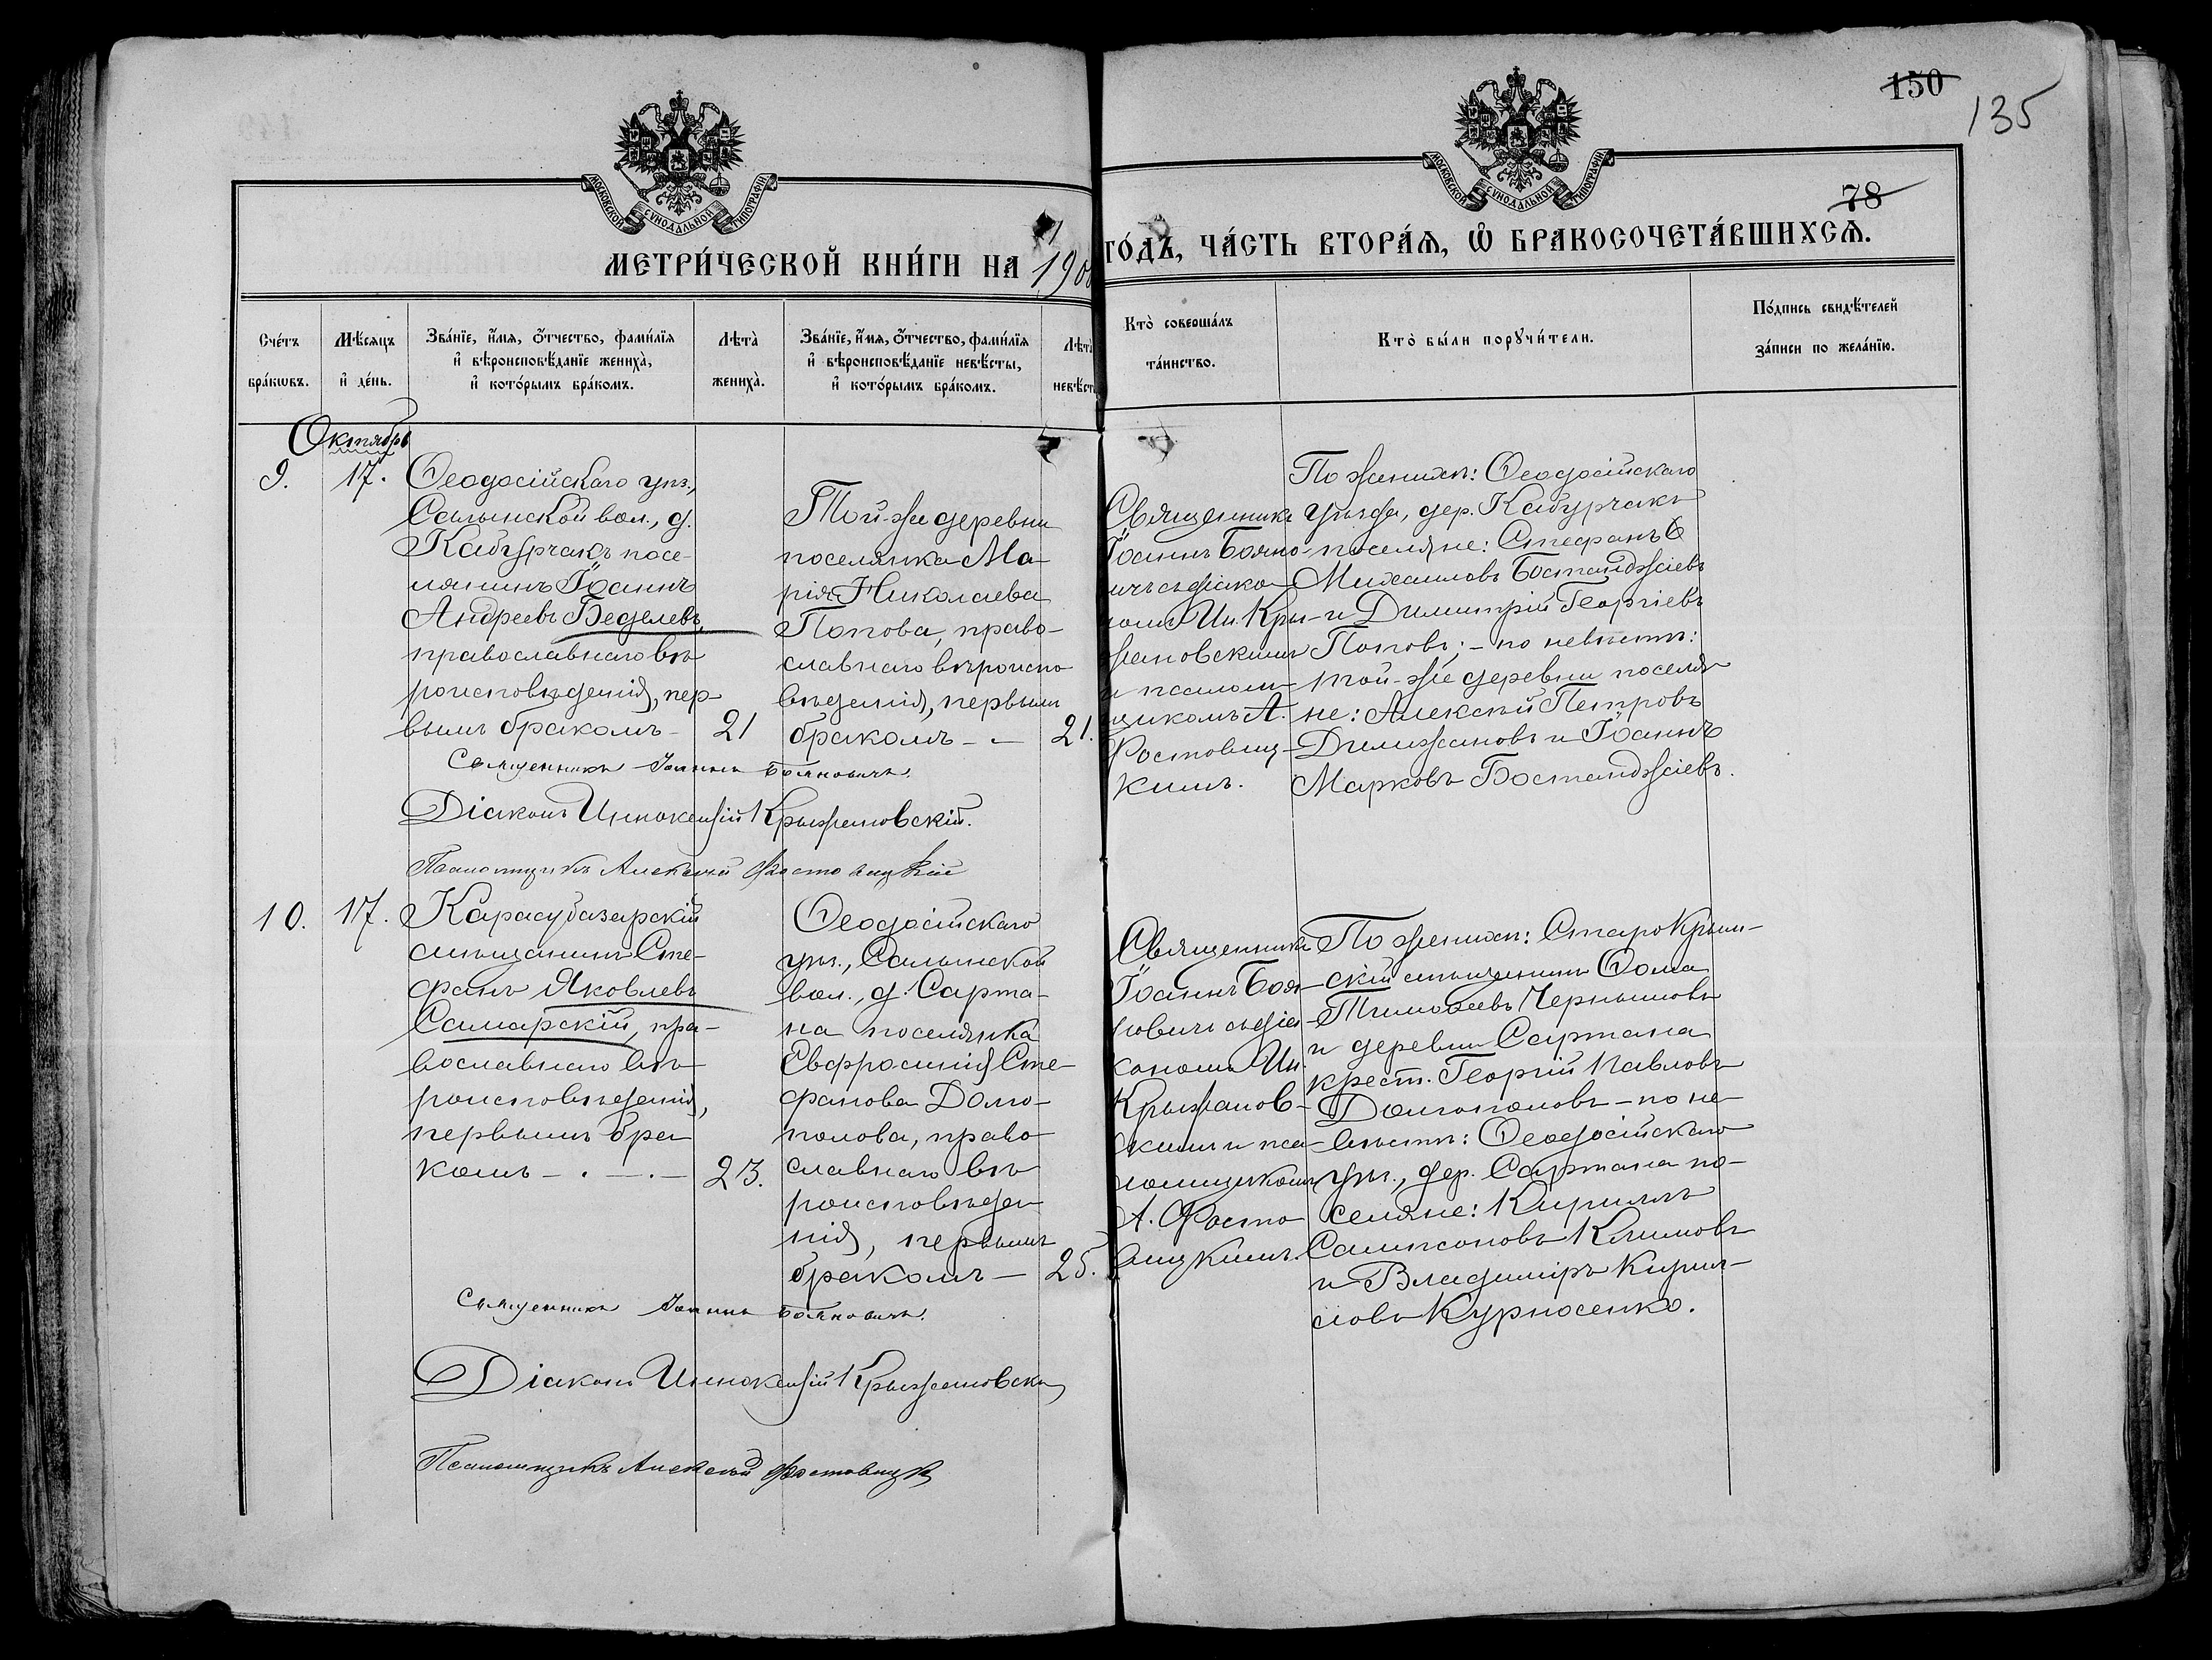 150
135
78
МОСКОВСКОЙ СѴНОДАЛЬНОЙ ТИПОГРАФІИ
МОСКОВСКОЙ СѴНОДАЛЬНОЙ ТИПОГРАФІИ
МЕТРИ́ЧЕСКОЙ КНИ́ГИ НА 190
ГО́ДЪ, ЧА́СТЬ ВТОРА́Я, Ѡ БРАКОСОЧЕТА́ВШИХСЯ.
Сче́тъ
бра́кѡвъ.
Мѣ́сяцъ
и҆ де́нь.
Зва́нїе, и҆́мя, ѻ҆́тчество, фами́лїя
и҆ вѣроисповѣ́данїе жениха̀,
и҆ кото́рымъ бра́комъ.
Лѣта̀
жениха̀.
Зва́нїе, и҆́мя, ѻ҆́тчество, фами́лїя
и҆ вѣроисповѣ́данїе невѣ́сты,
и҆ кото́рымъ бра́комъ.
Лѣта̀
невѣ́ст
Кто̀ соверша́лъ
та́инство.
Кто̀ бы́ли порꙋчи́тели.
По́дпись свидѣ́телей
за́писи по жела́нїю.
Октябрь
9.
17.
Ѳеодосійскаго уѣз.,
Салынской вол., д.
Кабурчакъ посе-
лянинъ Іоаннъ
Андреевъ Беделевъ,
православнаго вѣ-
роисповѣданія, пер-
вымъ бракомъ –
21
Той-же деревни
поселянка Ма-
рія Николаева
Попова, право-
славнаго вѣроиспо-
вѣданія, первымъ
бракомъ – –
21.
Священникъ
Іоаннъ Бояно-
вичъ съ діако-
номъ Ин. Кры-
жановскимъ
и псалом-
щикомъ А.
Фостовиц-
кимъ.
По женихѣ: Ѳеодосійскаго
уѣзда, дер. Кабурчакъ
поселяне: Стефанъ
Михаиловъ Бостанджіевъ
и Димитрій Георгіевъ
Поповъ; – по невѣстѣ:
той-же деревни поселя-
не: Алексѣй Петровъ
Димжановъ и Іоаннъ
Марковъ Бостанджіевъ.
Священникъ Іоаннъ Бояновичъ.
Діаконъ Иннокентій Крыжановскій.
Псаломщикъ Алексѣй Фостовицкій
10.
17.
Карасубазарскій
мѣщанинъ Сте-
фанъ Яковлевъ
Самарскій, пра-
вославнаго вѣ-
роисповѣданія,
первымъ бра-
комъ – . – . –
23.
Ѳеодосійскаго
уѣз., Салынской
вол., д. Сарта-
на поселянка
Евфросинія Сте-
фанова Долго-
полова, право-
славнаго вѣ-
роисповѣда-
нія, первымъ
бракомъ –
25.
Священникъ
Іоаннъ Боя-
новичъ съ діа-
кономъ Ин.
Крыжанов-
скимъ и пса-
ломщикомъ
А. Фосто-
вицкимъ.
По женихѣ: Старокрым-
скій мѣщанинъ Ѳома
Тимоѳеевъ Чернышовъ
и деревни Сартана
крест. Георгій Павловъ
Долгополовъ – по не-
вѣстѣ: Ѳеодосійскаго
уѣз., дер. Сартана по-
селяне: Кириллъ
Сампсоновъ Климовъ
и Владиміръ Кирил-
ловъ Курносенко.
Священникъ Іоаннъ Бояновичъ.
Діаконъ Иннокентій Крыжановскій
Псаломщикъ Алексѣй Фостовицкій